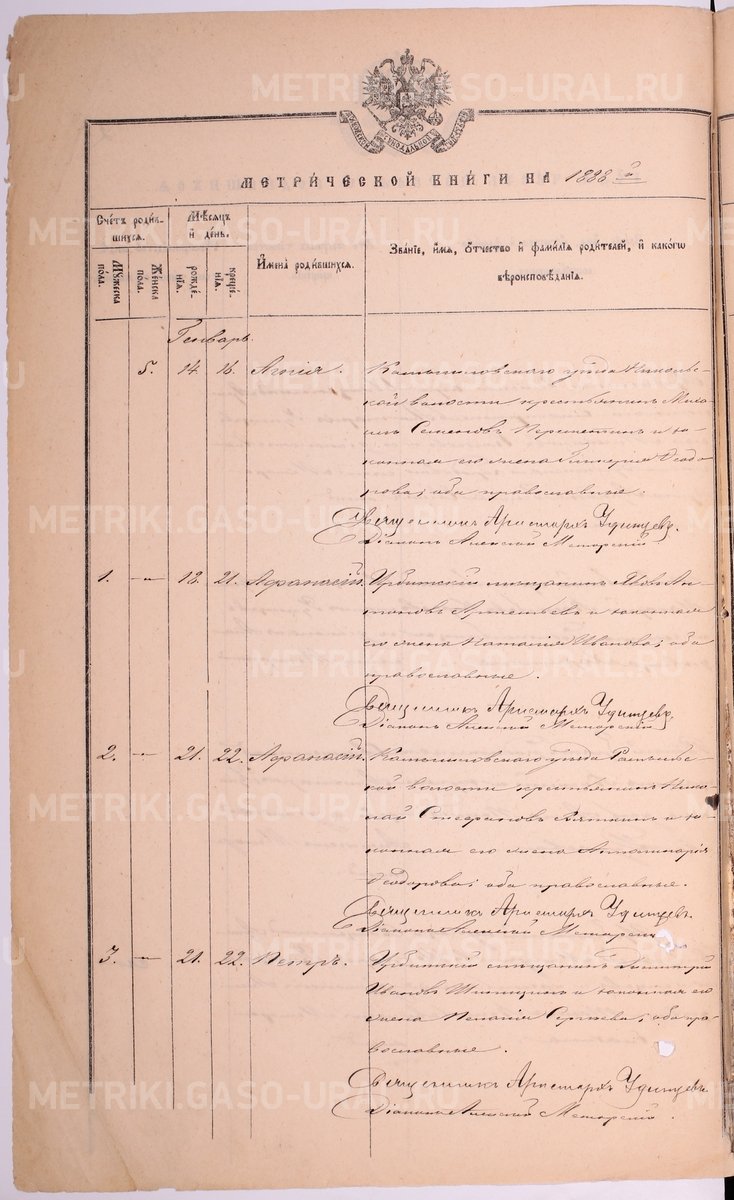 МЕТРИ́ЧЕСКОЙ КНИ́ГИ НА 1888 й
Сче́тъ роди́в-
шихся.
Мѣсяцъ
и день.
Имена̀ роди́вшихся.
Зва́нїе, и́мя, о́тчество и фами́лїя роди́телей, и како́гѡ
вѣроисповѣ́данїя.
Му́жеска
по́ла.
Же́нска
по́ла.
рожде́-
нїя.
креще́-
нїя.
Генварь.
5. 14. 16. Агнія. Камышловскаго уѣзда Никольс-
кой волости крестьянинъ Миха-
илъ Семеновъ и за-
конная его жена Гликерія Ѳеодо-
рова; оба православные.
Священникъ Аристархъ Удинцевъ.
Діаконъ Алексій
1. — 18. 21. Аѳанасій. Ирбитскій мѣщанинъ Яковъ Ан-
тоновъ Артемьевъ и законная
его жена Наталія Иванова; оба
православные.
Священникъ Аристархъ Удинцевъ.
Діаконъ Алексій
2. — 21. 22. Аѳанасій. Камышловскаго уѣзда
кой волости крестьянинъ Нико-
лай Стефановъ Вяткинъ и за-
конная его жена
Ѳеодорова; оба православные.
Священникъ Аристархъ Удинцевъ.
Діаконъ Алексій
3. — 21. 22. Петръ. Ирбитскій мѣщанинъ Димитрій
Ивановъ и законная его
жена Пелагія Сергѣева; оба пра-
вославные.
Священникъ Аристархъ Удинцевъ.
Діаконъ Алексій
METRIKI.GASO-URAL.RU